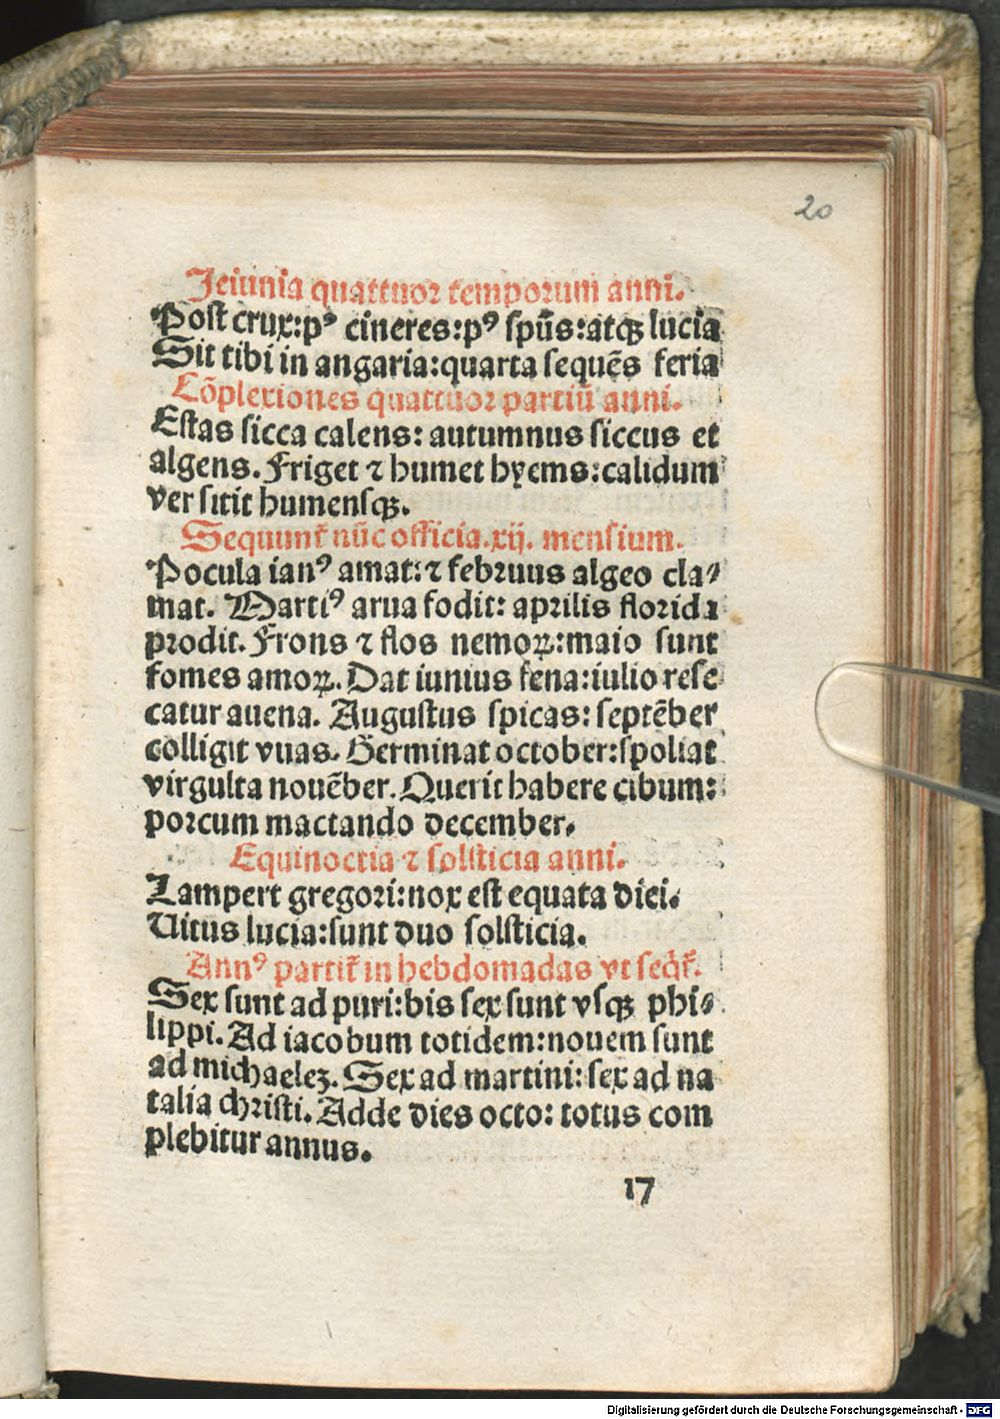 20
Jeiunia quattuor temporum anni.
Post crux:pꝰ cineres:pꝰ spūs:atqꝫ lucia
Sit tibi in angaria:quarta sequēs feria
Cōplexiones quattuor partiū anni.
Estas sicca calens: autumnus siccus et
algens. Friget ⁊ humet hyems:calidum
ver sitit humensqꝫ.
Sequunt̃ nūc officia.xij. mensium.
Pocula ianꝰ amat:⁊ februus algeo cla⸗
mat. Martiꝰ arua fodit: aprilis florida
prodit. Frons ⁊ flos nemoꝝ:maio sunt
fomes amoꝝ. Dat iunius fena:iulio rese
catur auena. Augustus spicas: septēber
colligit vuas. Germinat october:spoliat
virgulta nouēber. Querit habere cibum:
porcum mactando december.
Equinoctia ⁊ solsticia anni.
Lampert gregori:nox est equata diei.
Uitus lucia:sunt duo solsticia.
Annꝰ partit̃ in hebdomadas vt seqr̃.
Sex sunt ad puri:bis sex sunt vsqꝫ phi⸗
lippi. Ad iacobum totidem:nouem sunt
ad michaelez. Sex ad martini: sex ad na
talia christi. Adde dies octo: totus com
plebitur annus.
17
Digitalisierung gefördert durch die Deutsche Forschungsgemeinschaft - DFG